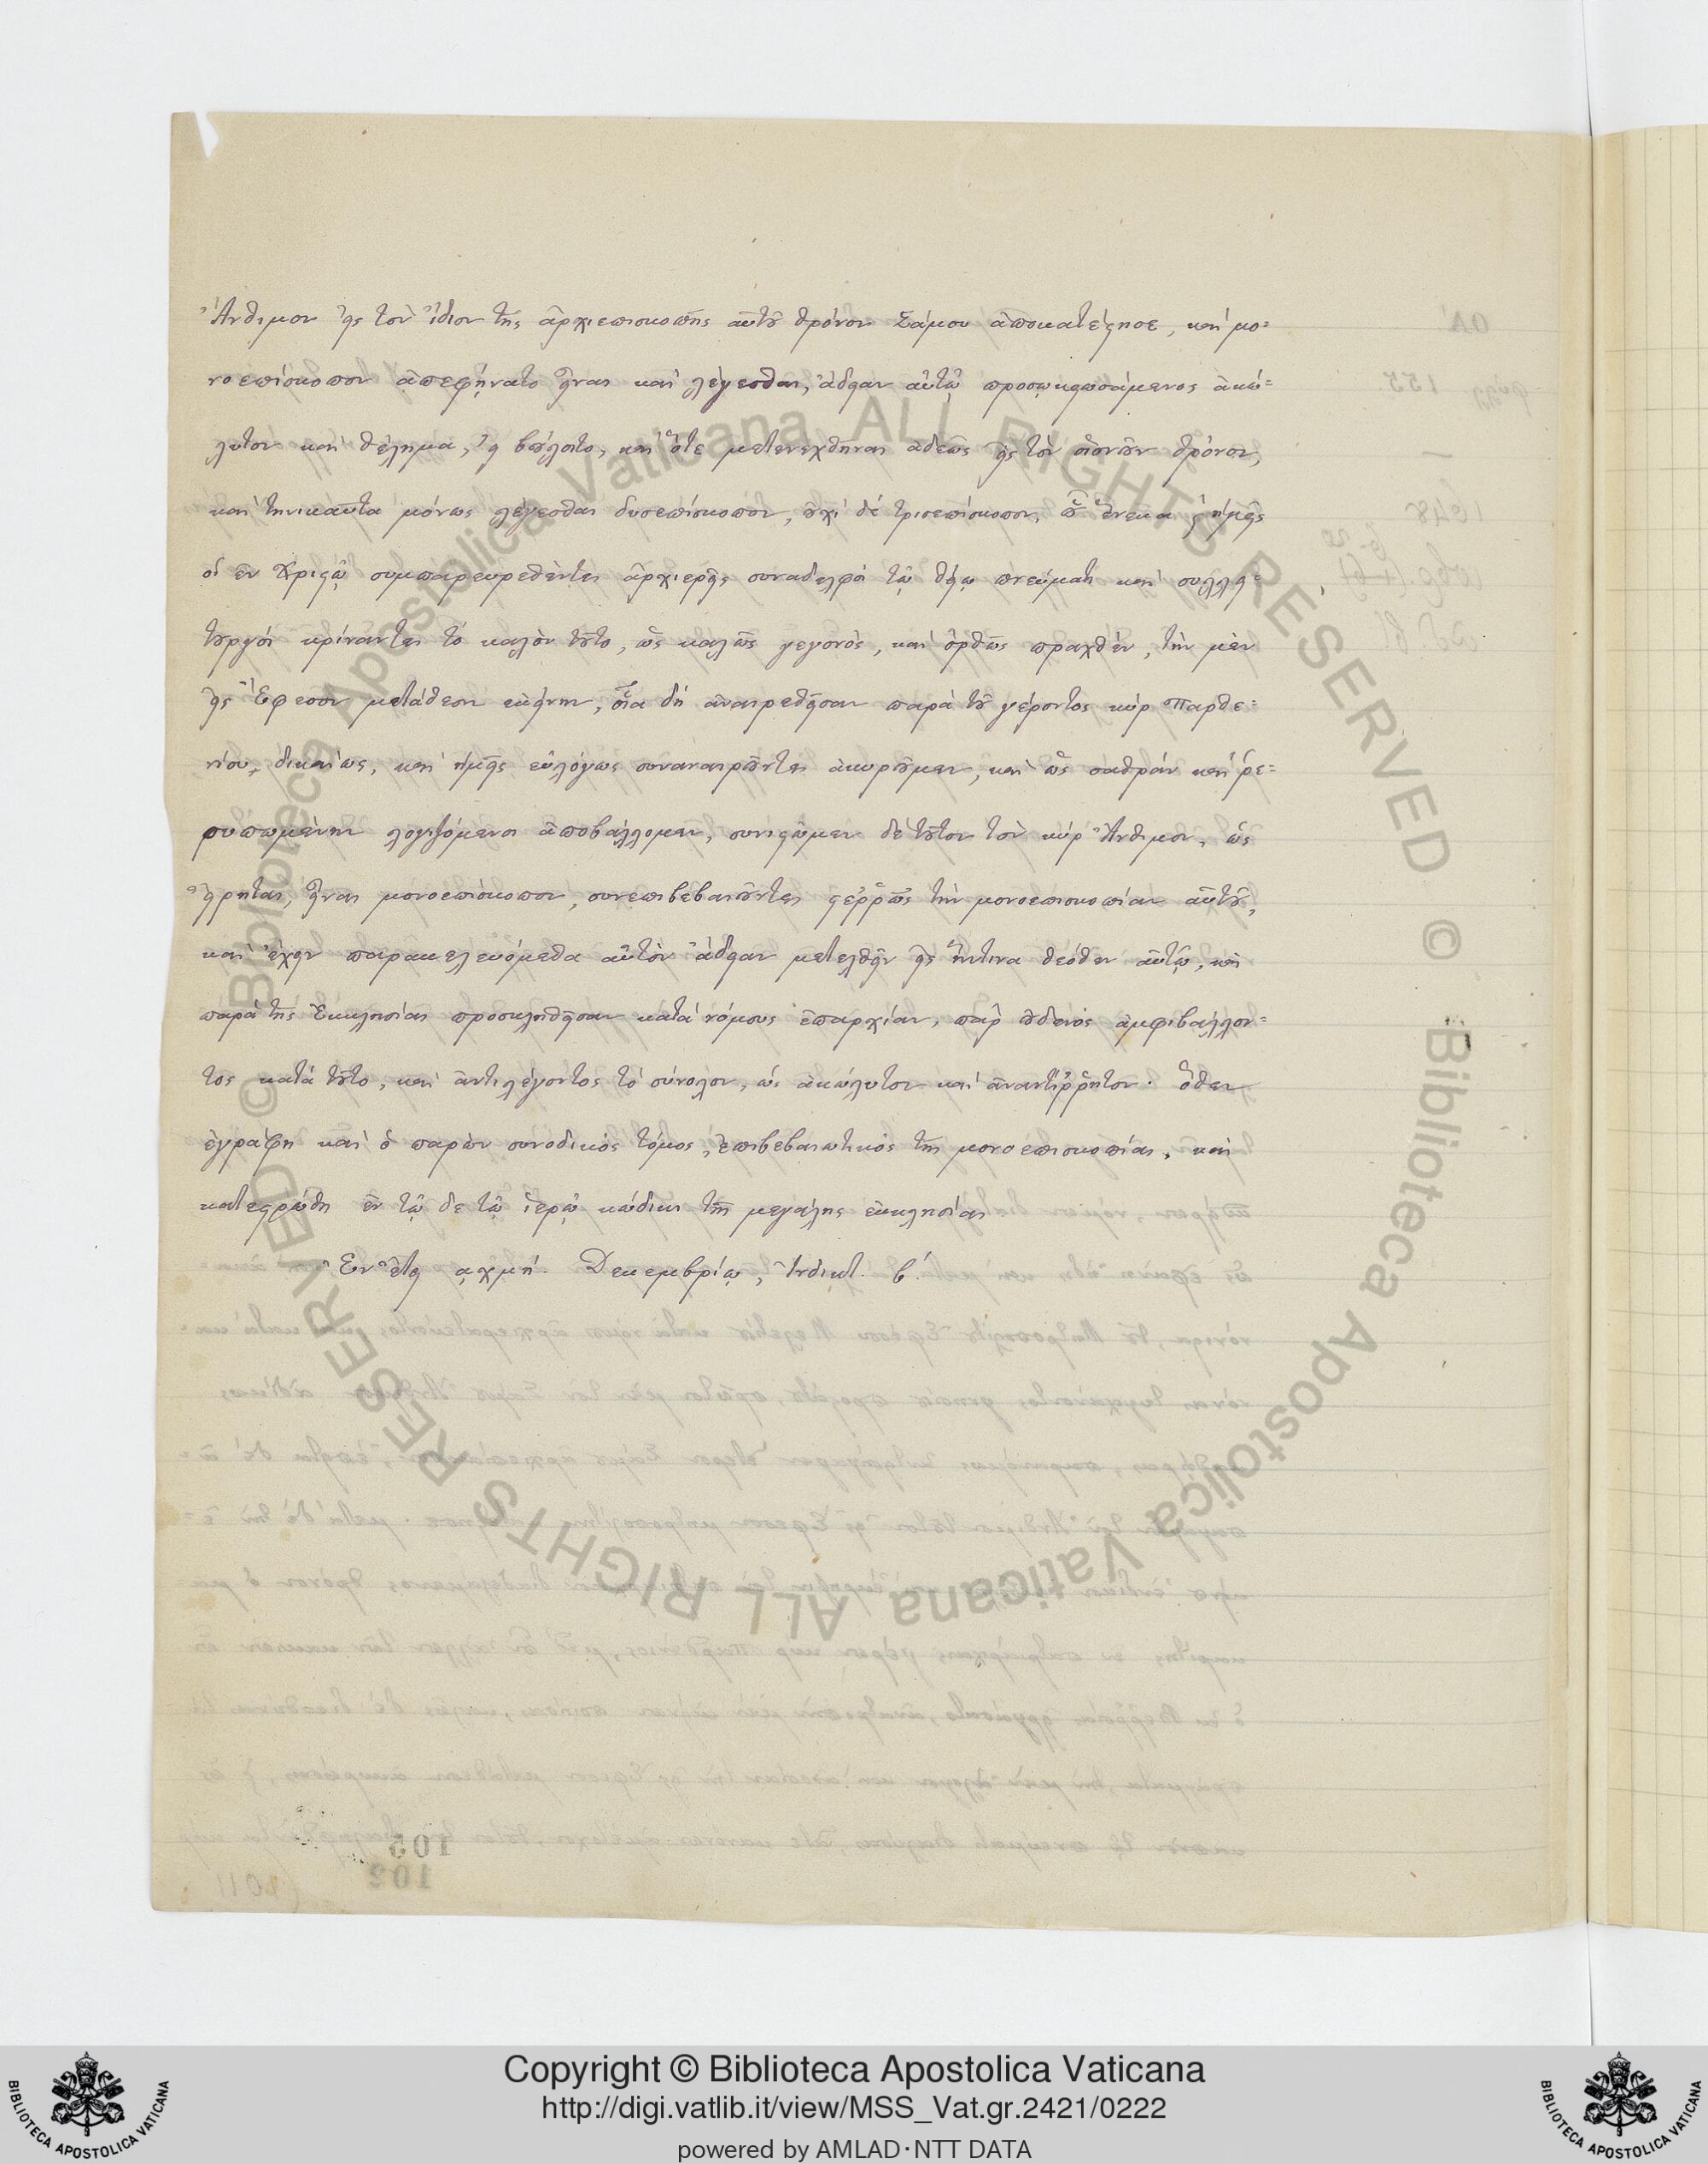 Ἄνθιμον εἰς τὸν ἴδιον τῆς ἀρχιεπισκοπῆς αὐτοῦ θρόνον Σάμου ἀποκατέστησε, καὶ μο=
νοεπίσκοπον ἀπεφήνατο εἶναι καὶ λέγεσθαι, ἄδειαν αὐτῷ προσῳκειωσάμενος ἀκώ=
λυτον καὶ θέλημα, εἰ βούλοιτο, καὶ ὅτε μετενεχθῆναι ἀδεῶς εἰς τὸν οἱονοῦν θρόνον,
καὶ τηνικαῦτα μόνως λέγεσθαι δυσεπίσκοπον, οὐχὶ δὲ τρισεπίσκοπον, οὗ ἕνεκα καὶ ἡμεῖς
οἱ ἐν Χριστῷ συμπαρευρεθέντες ἀρχιερεῖς συναδελφοὶ τῷ θείῳ πνεύματι καὶ συλλει=
τουργοὶ κρίναντες τὸ καλὸν τοῦτο, ὡς καλῶς γεγονὸς, καὶ ὀρθῶς πραχθὲν, τὴν μὲν
εἰς Ἔφεσον μετάθεσιν ἐκείνην, οἷα δὴ ἀναιρεθεῖσαν παρὰ τοῦ γέροντος κὺρ Παρθε=
νίου, δικαίως, καὶ ἡμεῖς εὐλόγως συναναιροῦντες ἀκυροῦμεν, καὶ ὡς σαθρὰν καὶ ῥε=
ρυπωμένην λογιζόμενοι ἀποβάλλομεν, συνιστῶμεν δὲ τοῦτον τὸν κὺρ Ἄνθιμον, ὡς
εἴρηται, εἶναι μονοεπίσκοπον, συνεπιβεβαιοῦντες στερρῶς τὴν μονοεπισκοπίαν αὐτοῦ,
καὶ ἔχειν παρακελευόμεθα αὐτὸν ἄδειαν μετελθεῖν εἰς ἥντινα θεόθεν αὐτῷ, καὶ
παρὰ τῆς Ἐκκλησίας προσκληθεῖσαν κατὰ νόμους ἐπαρχίαν, παρ' οὐδενὸς ἀμφιβάλλον=
τος κατὰ τοῦτο, καὶ ἀντιλέγοντος τὸ σύνολον, ὡς ἀκώλυτον καὶ ἀναντίρρητον. Ὅθεν
ἐγράφη καὶ ὁ παρὼν συνοδικὸς τόμος, ἐπιβεβαιωτικὸς τῆς μονοεπισκοπίας, καὶ
κατεστρώθη ἐν τῷ δε τῷ ἱερῷ κώδικι τῆς μεγάλης ἐκκλησίας
Ἐν ἔτει αχμή. Δεκεμβρίῳ, Ἰνδικτ. β.
Copyright © Biblioteca Apostolica Vaticana
http://digi.vatlib.it/view/MSS_Vat.gr.2421/0222
powered by AMLAD·NTT DATA
© Biblioteca Apostolica Vaticana ALL RIGHTS RESERVED © Biblioteca Apostolica Vaticana ALL RIGHTS RESERVED
BIBLIOTECA APOSTOLICA VATICANA
BIBLIOTECA APOSTOLICA VATICANA